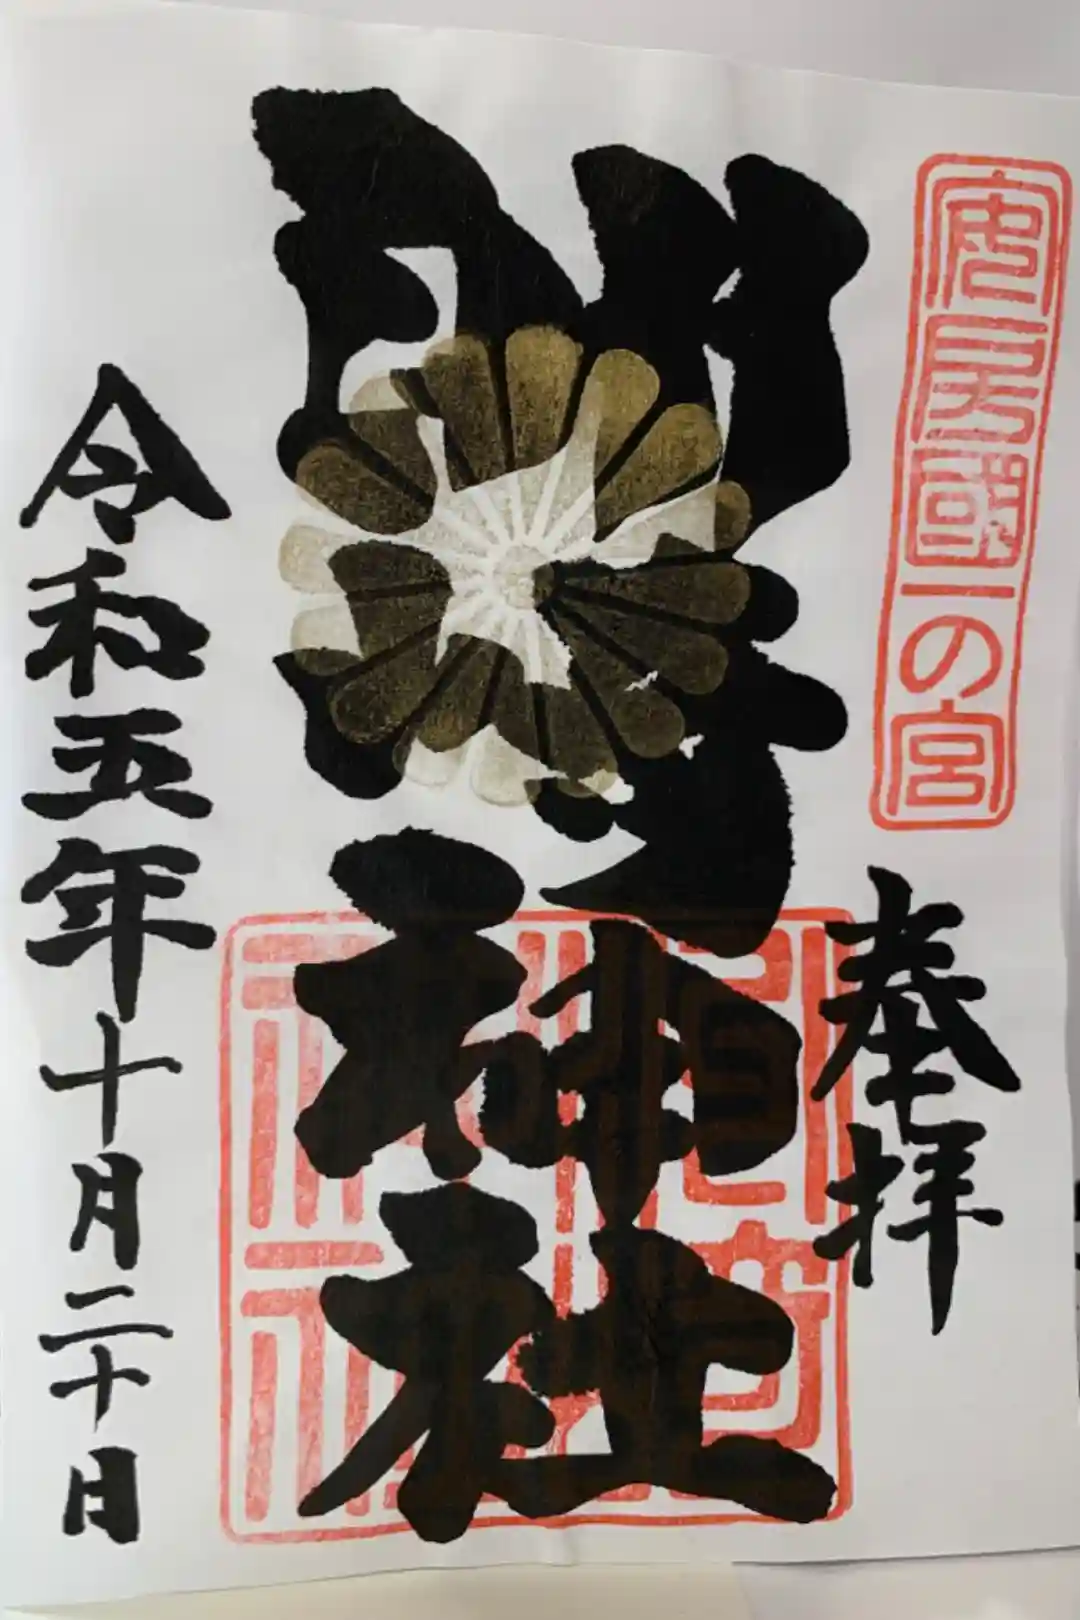 安房國一の宮
奉拝
神社
令和五年十月二十日